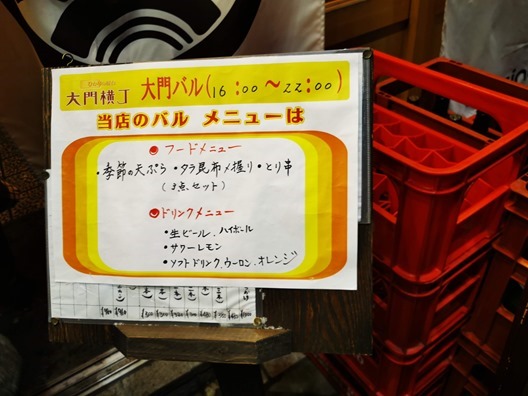 大門横丁 大門バル(16:00〜22:00)
当店のバル メニューは
フードメニュー
・季節の天ぷら ・タラ昆布〆握り ・とり串
(3点セット)
ドリンクメニュー
・生ビール、ハイボール
・サワーレモン
・ソフトドリンク、ウーロン、オレンジ